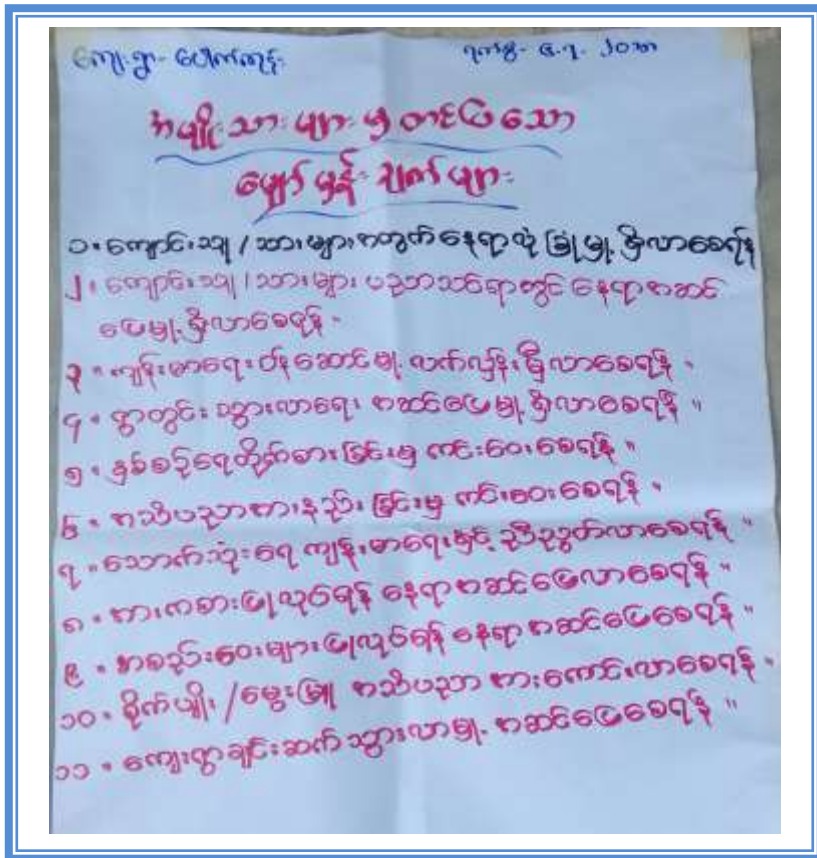 ကျေးရွာ- ပေါက်တုန်း ရက်စွဲ- ၆.၇. ၂၀၁၈
အမျိုးသားများမှ တင်ပြသော
မျှော်မှန်းချက်များ
၁။ ကျောင်းသူ / သားများအတွက် နေရာလုံခြုံမှု ရှိလာစေရန်
၂။ ကျောင်းသူ / သားများ ပညာသင်ရာတွင် နေရာအဆင်
ပြေမှု ရှိလာစေရန် ။
၃။ ကျန်းမာရေး ဝန်ဆောင်မှု လက်လှန်းမှီလာစေရန် ။
၄။ ရွာတွင်း သွားလာရေး အဆင်ပြေမှု ရှိလာစေရန် ။
၅။ နှစ်စဉ်ရေတိုက်စားခြင်းမှ ကင်းဝေးစေရန် ။
၆။ အသိပညာအားနည်းခြင်းမှ ကင်းဝေးစေရန် ။
၇။ သောက်သုံးရေ ကျန်းမာရေးနှင့် ညီညွတ်လာစေရန် ။
၈။ အားကစားပြုလုပ်ရန် နေရာ အဆင်ပြေလာစေရန် ။
၉။ အစည်းဝေးများပြုလုပ်ရန် နေရာ အဆင်ပြေစေရန် ။
၁၀။ စိုက်ပျိုး / မွေးမြူ အသိပညာ အားကောင်းလာစေရန် ။
၁၁။ ကျေးရွာချင်းဆက်သွားလာမှု အဆင်ပြေစေရန် ။